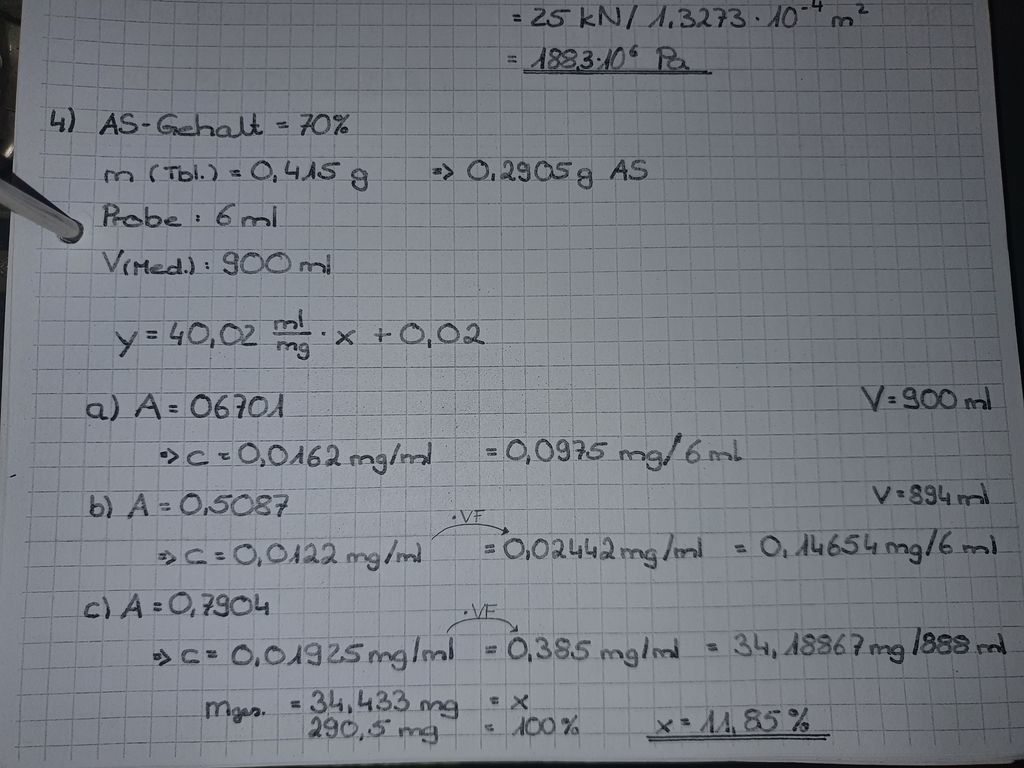 = 25 kN / 1.3273 · 10⁻⁴ m²
= 1883·10⁶ Pa
4) AS-Gehalt = 70%
m (Tbl.) = 0,415 g => 0,2905 g AS
Probe : 6 ml
V(Med.) : 900 ml
y = 40,02 ml/mg · x + 0,02
a) A = 06701 V = 900 ml
=> c = 0,0162 mg/ml = 0,0975 mg/6 ml
b) A = 0,5087 V = 894 ml
·VF
=> c = 0,0122 mg/ml = 0,02442 mg/ml = 0,14654 mg/6 ml
c) A = 0,7904
·VF
=> c = 0,01925 mg/ml = 0,385 mg/ml = 34,18867 mg/888 ml
mges. = 34,433 mg = x
290,5 mg = 100% x = 11,85%